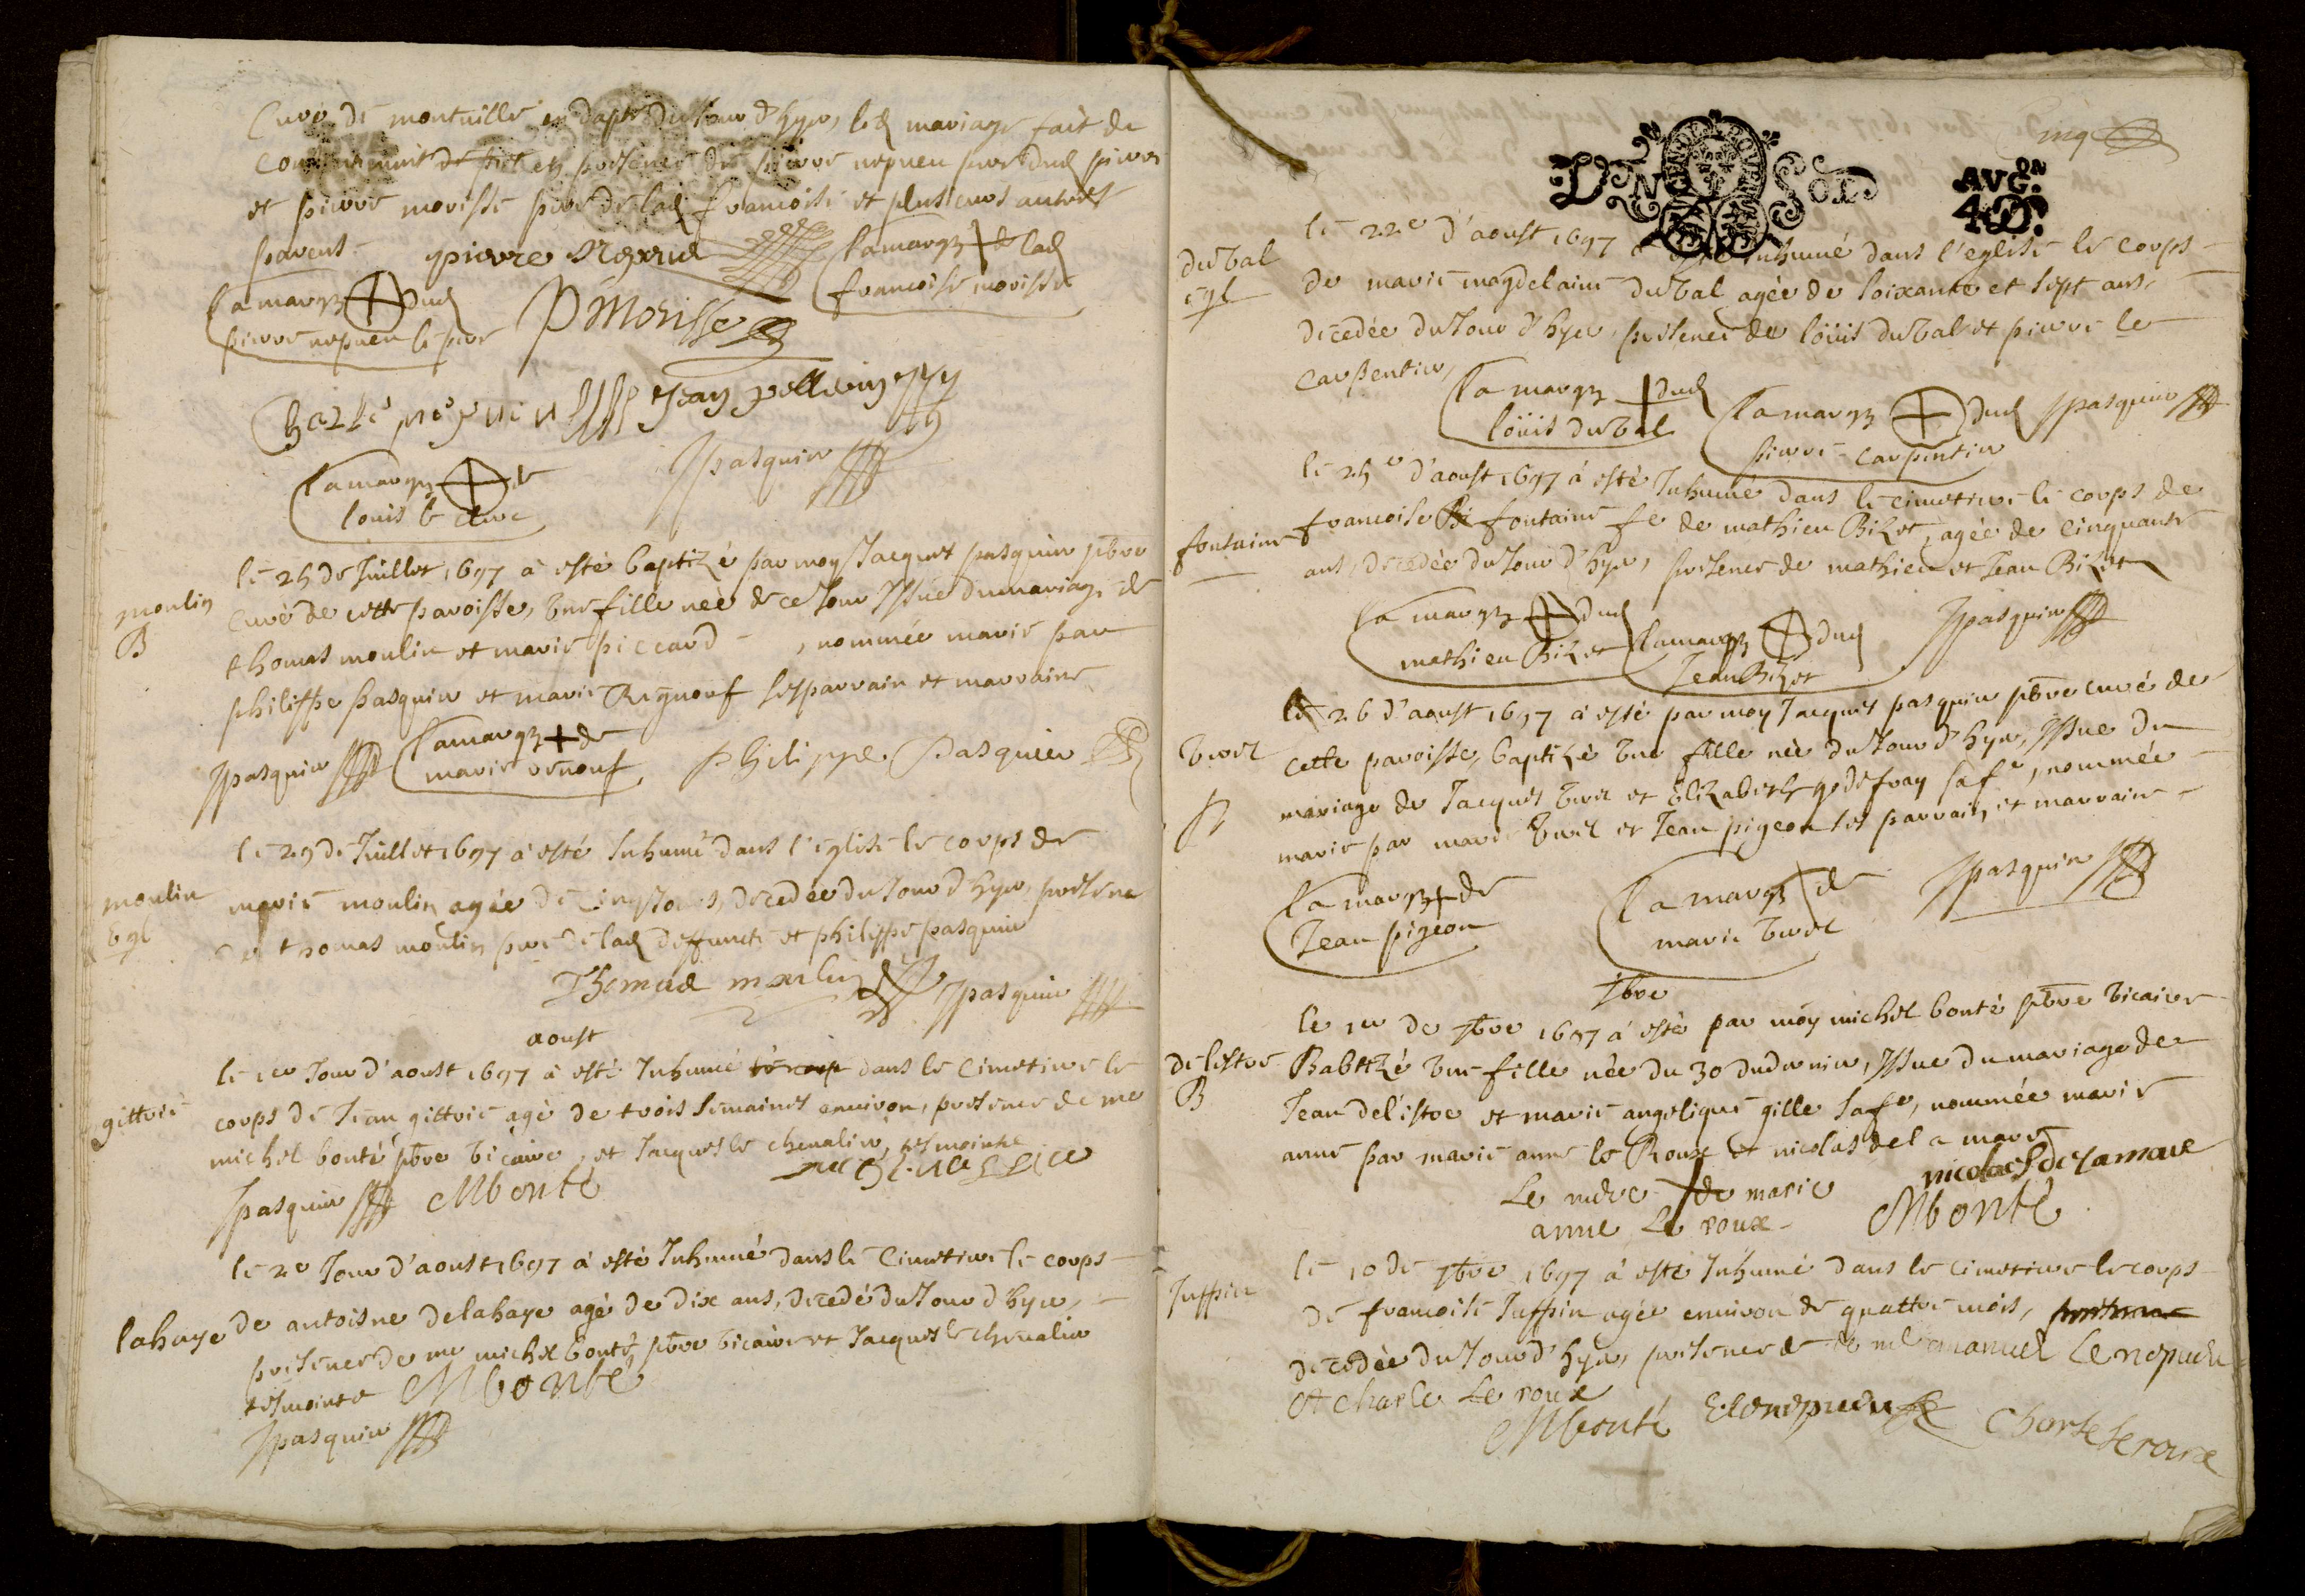 Curé de montuille en dapte du Jour d'hyer, led mariage fait du
et en presence de pierre nepueu pere dud pierre
et pierre morisse pere de lad francoise et plusieurs autres
parents
pierre Nepueu
la marq3 + de lad
francoise morisse
la marq3 + dud
pierre nepueu le pere
P Morisse
Charle nepueu Jean pellerin
la marq3 + de
louis le clerc
Jpasquier
le 25 de Juillet 1697 à esté baptizé par moy Jacques pasquier pbre
moulin
B
curé de cette paroisse, vne fille née de ce Jour Issue du mariage de
thomas moulin et marie piccard, nommée marie par
philippe pasquier et marie Regnouf ses parrain et marraine
Jpasquier
la marq3 + de
marie renouf
Philippe Pasquier
le 29 de Juillet 1697 à esté Inhumé dans l'eglise le corps de
moulin
Egl
marie moulin agée de Cinq Jours, decedée du Jour d'hyer, presence
de thomas moulin pere de lad deffuncte et philippe pasquier
Thomas moulin Jpasquier
aoust
le 1er Jour d'aoust 1697 à esté Inhumé le corps dans le Cimetiere le
gittrie
corps de Jean gittrie agé de trois semaines enuiron, presence de me
michel bonté pbre vicaire, et Jacques le cheualier, tesmoints
Jpasquier Mbonté
le 2e Jour d'aoust 1697 à esté Inhumé dans le Cimetiere le corps
lahaye
de antoisne delahaye agé de dix ans, decedé du Jour d'hyer,
presence de me michel bonté pbre vicaire et Jacques le cheualier
tesmoints Mbonté
Jpasquier
Cinq
DEN SOL
GEN
AVG.on
4 D.
le 22e d'aoust 1697 à esté Inhumé dans l'eglise le corps
duval
egl
de marie magdelaine duval agée de soixante et sept ans,
decedée du Jour d'hyer, presence de loüis duval et pierre le
carpentier,
la marq3 + dud
loüis duval
la marq3 + dud
pierre carpentier
Jpasquier
le 25e d'aoust 1697 à esté Inhumé dans le cimetiere le corps de
fontaine
francoise Bi fontaine fe de mathieu Bizet, agée de cinquante
ans, decedée du Jour d'hyer, presence de mathieu et Jean Bizet
la marq3 + dud
mathieu Bizet
la marq3 + dud
Jean Bizet
Jpasquier
le 26 d'aoust 1697 à esté par moy Jacques pasquier pbre curé de
vivet
B
cette paroisse, baptizé vne fille née du Jour d'hyer, Issue du
mariage de Jacques vivet et Elizabeth godefray sa fe, nommée
marie par marie vivet et Jean pigeon ses parrain et marraine
la marq3 + de
Jean pigeon
la marq3 + de
marie vivet
Jpasquier
7bre
le 1er de 7bre 1697 à esté par moy michel bonté pbre vicaire
delestre
B
Babtizé vne fille née du 30 du dernier, Issue du mariage de
Jean delistre et marie angelique gille sa fe, nommée marie
anne par marie anne le Roux et nicolas de la mare
nicolas de lamare
Le merc + de marie
anne Le roux
Mbonté
le 10 de 7bre 1697 à esté Inhumé dans le cimetiere le corps
Juppin
de francoise Juppin agée enuiron de quattre mois, presence
decedée du Jour d'hyer, presence de me emanuel Le nepueu
et charle Le roux
Mbonté E. Lenepueu Charle Le roux